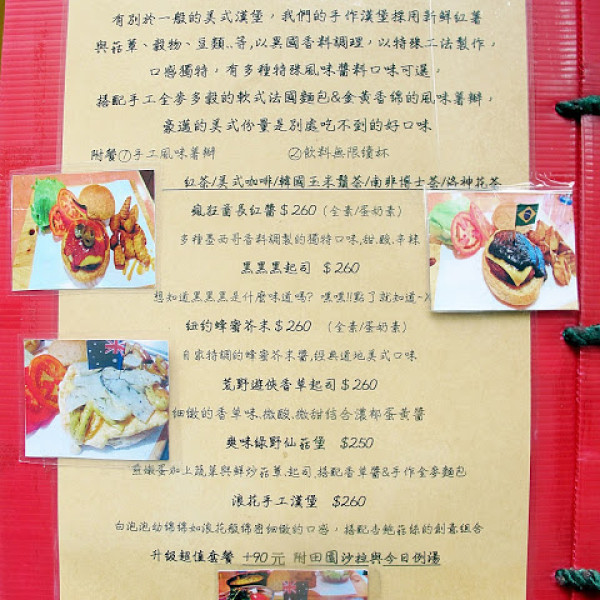 有別於一般的美式漢堡，我們的手作漢堡採用新鮮紅薯
與菇蕈、穀物、豆類..等,以異國香料調理，以特殊工法製作，
口感獨特，有多種特殊風味醬料口味可選，
搭配手工全麥多穀的軟式法國麵包&金黃香綿的風味薯瓣，
豪邁的美式份量是別處吃不到的好口味
附餐①手工風味薯瓣 ②飲料無限續杯
紅茶/美式咖啡/韓國玉米鬚茶/南非博士茶/洛神花茶
瘋狂酋長紅醬$260(全素/蛋奶素)
多種墨西哥香料調製的獨特口味,甜.酸.辛辣
黑黑黑起司 $260
想知道黑黑黑是什麼味道嗎? 嘿嘿!!點了就知道~
紐約蜂蜜芥末$260 (全素/蛋奶素)
自家特調的蜂蜜芥末醬,經典道地美式口味
荒野遊俠香草起司$260
細緻的香草味.微酸.微甜結合濃郁蛋黃醬
爽味綠野仙菇堡 $250
煎嫩蛋加上蔬菜與鮮炒菇蕈.起司.搭配香草醬&手作全麥麵包
浪花手工漢堡 $260
白泡泡幼綿綿如浪花般綿密細緻的口感，搭配杏鮑菇絲的創意組合
升級超值套餐 +90元 附田園沙拉與今日例湯